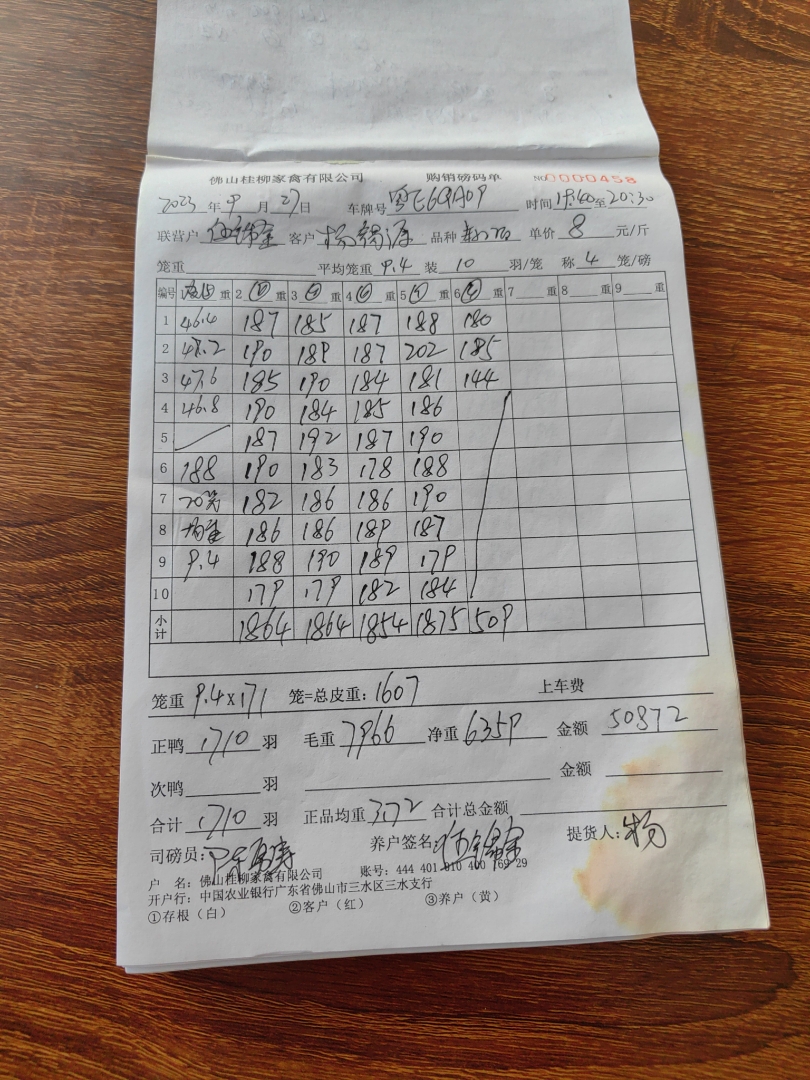 佛山桂柳家禽有限公司 购销磅码单 NO 0000458
2023年9月27日 车牌号 粤E6QA09 时间 至20:30
联营户 客户 杨 源 品种 单价 8 元/斤
笼重 平均笼重 9.4 装 10 羽/笼 称 4 笼/磅
编号 1 重 2 重 3 重 4 重 5 重 6 重 7 重 8 重 9 重
1 46.4 187 185 187 188 180
2 47.2 190 189 187 202 185
3 47.6 185 190 184 181 144
4 46.8 190 184 185 186
5 187 192 187 190
6 188 190 183 178 188
7 20笼 182 186 186 190
8 186 186 189 187
9 9.4 188 190 189 179
10 179 179 182 184
小计 1864 1864 1854 1875 509
笼重 9.4x171 笼=总皮重: 1607 上车费
正鸭 1710 羽 毛重 7966 净重 6359 金额 50872
次鸭 羽 金额
合计 1710 羽 正品均重 3.72 合计总金额
司磅员: 养户签名: 提货人: 杨
户 名: 佛山桂柳家禽有限公司 账号: 444 401 010 400 169 29
开户行: 中国农业银行广东省佛山市三水区三水支行
①存根（白） ②客户（红） ③养户（黄）